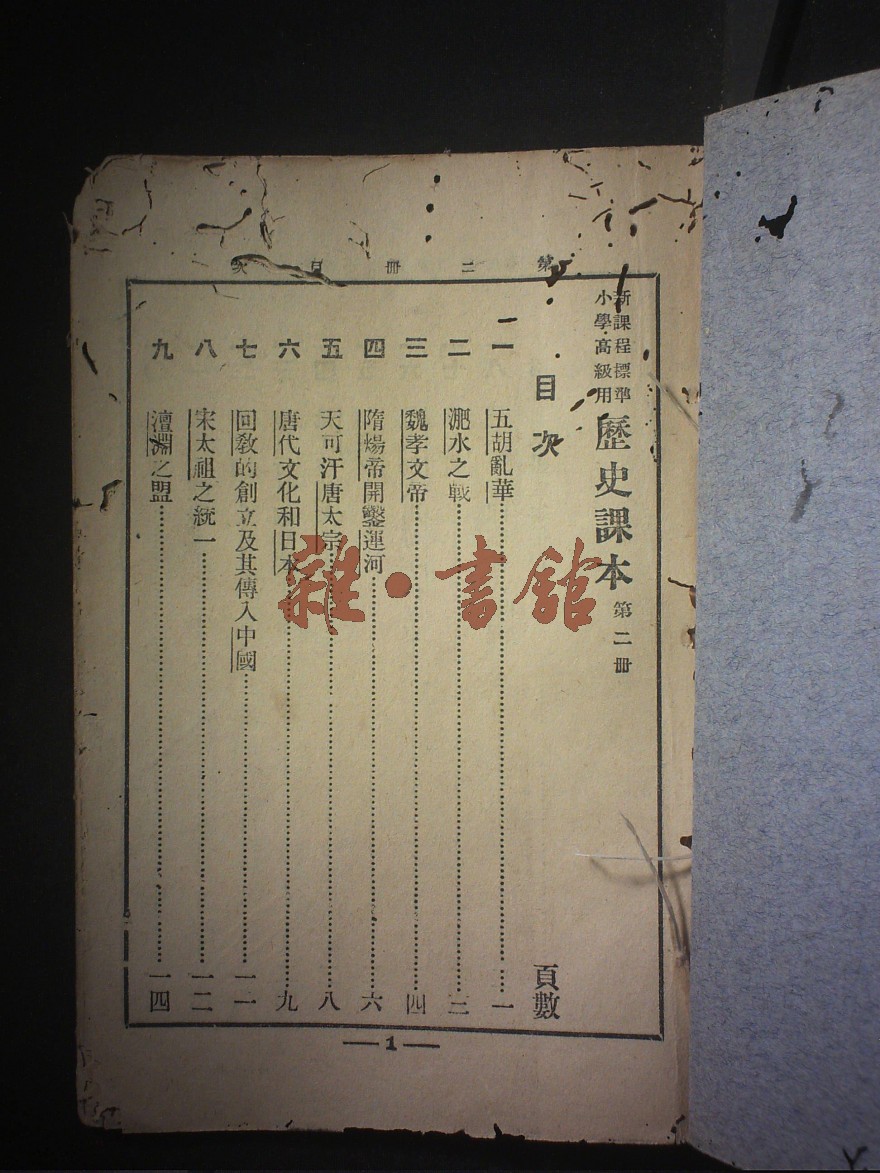 第二册目次
新課程標準
小學高級用
歷史課本 第二冊
目次 頁數
一 五胡亂華 一
二 淝水之戰 三
三 魏孝文帝 四
四 隋煬帝開鑿運河 六
五 天可汗唐太宗 八
六 唐代文化和日本 九
七 回教的創立及其傳入中國 一一
八 宋太祖之統一 一二
九 澶淵之盟 一四
1
雜·書館